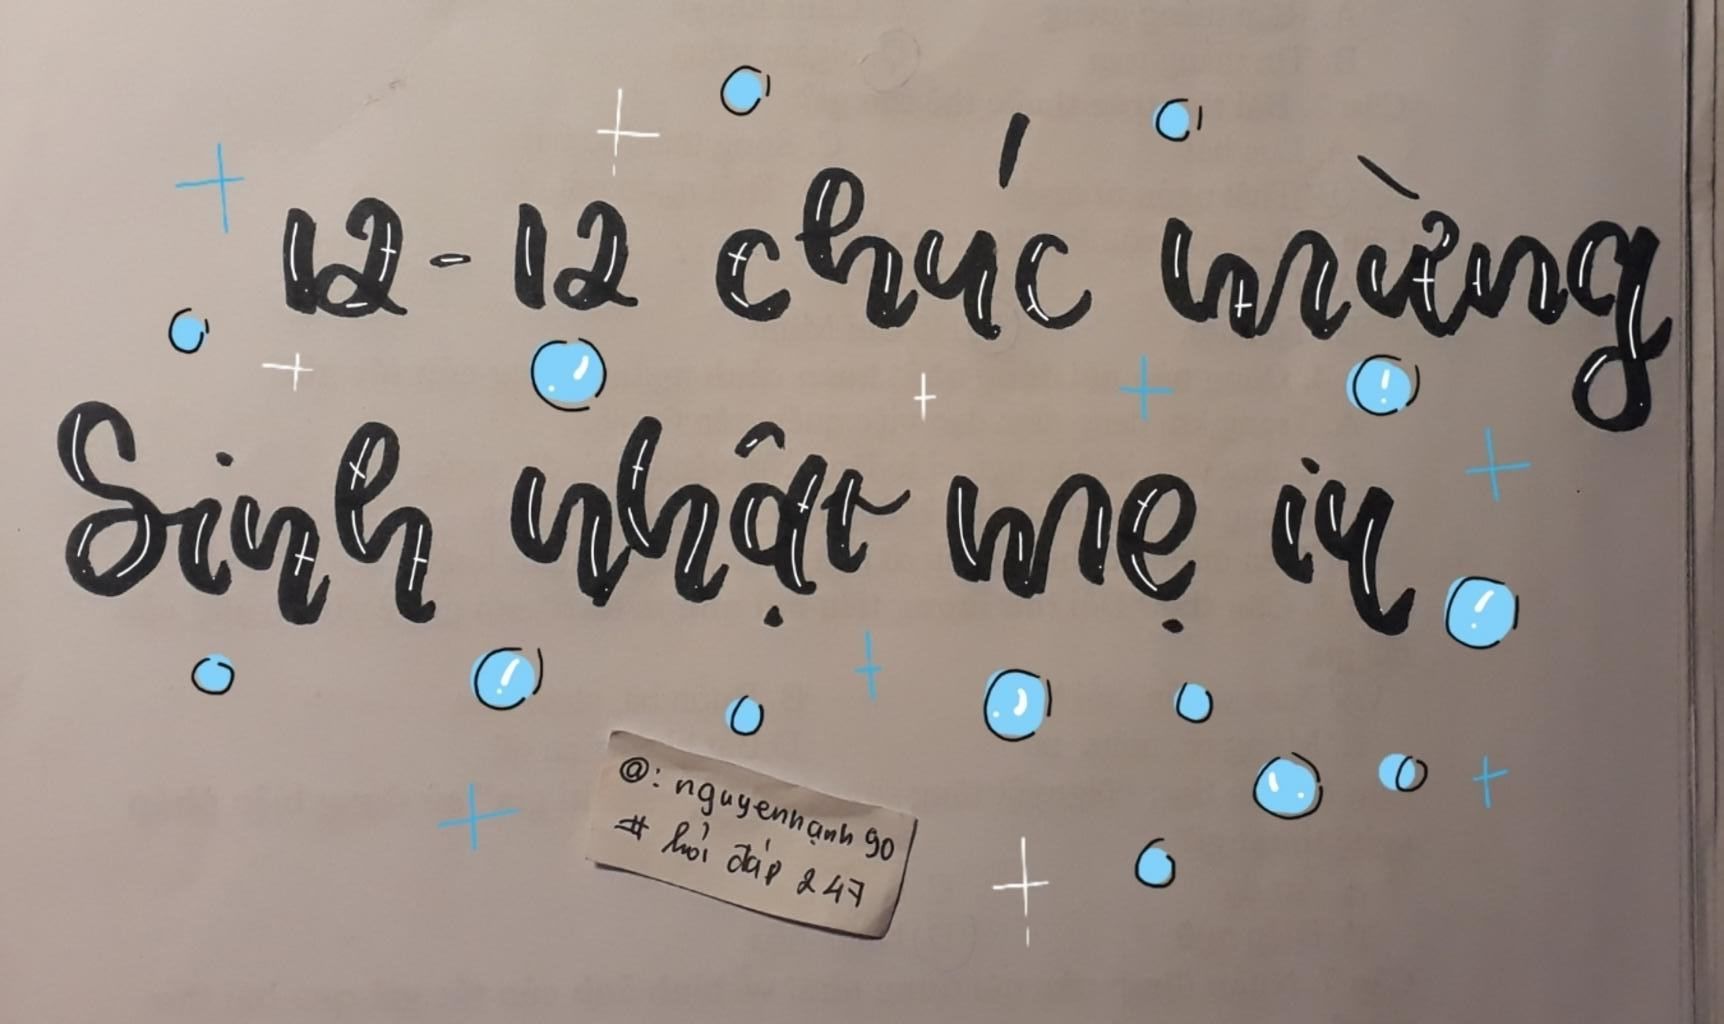 12-12 chúc mừng
Sinh nhật mẹ iu
@: nguyenhạnh90
# hỏi đáp 247